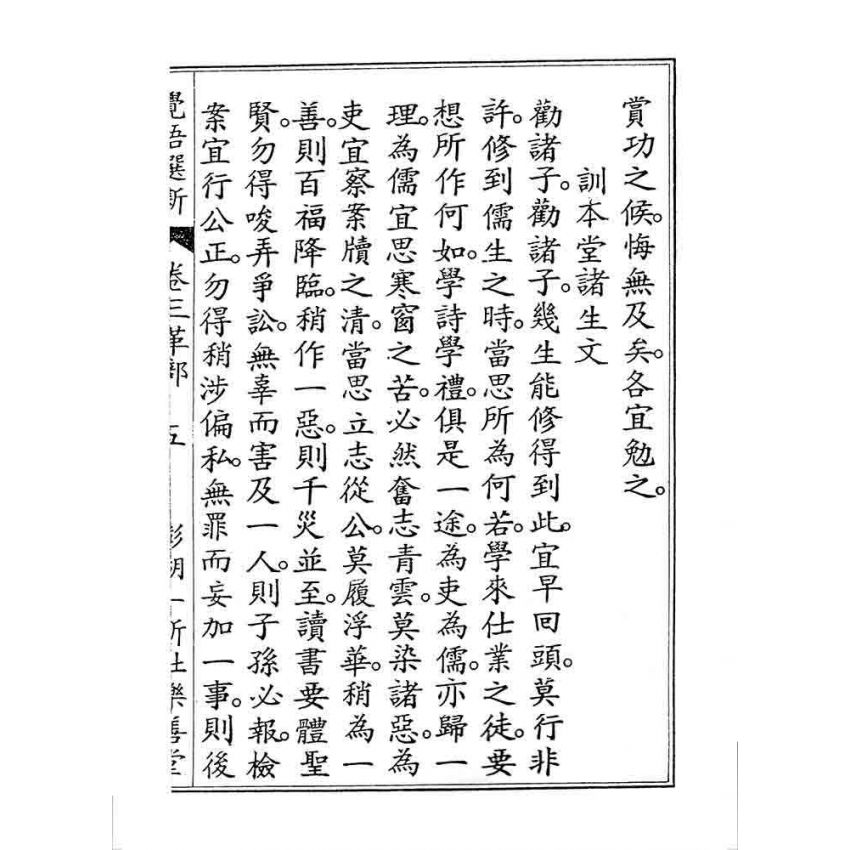 賞功之候。悔無及矣。各宜勉之。
訓本堂諸生文
勸諸子。勸諸子。幾生能修得到此。宜早回頭。莫行非
許。修到儒生之時。當思所為何若。學來仕業之徒。要
想所作何如。學詩學禮。俱是一途。為吏為儒。亦歸一
理。為儒宜思寒窗之苦。必然奮志青雲。莫染諸惡。為
吏宜察案牘之清。當思立志從公。莫履浮華。稍為一
善。則百福降臨。稍作一惡。則千災並至。讀書要體聖
賢。勿得唆弄爭訟。無辜而害及一人。則子孫必報。檢
案宜行公正。勿得稍涉偏私。無罪而妄加一事。則後
覺悟選新 卷三革部 五 澎湖一新社樂善堂